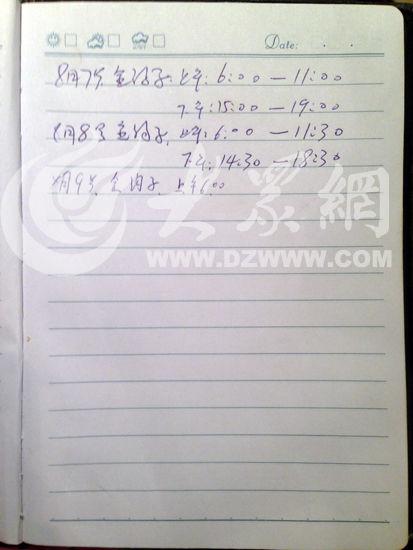 Date: . .
8月7号 金沟子: 上午: 6:00 — 11:00
下午: 15:00 — 19:00
8月8号 金沟子, 上午: 6:00 — 11:30
下午: 14:30 — 18:30
8月9号, 金沟子, 上午6:00
大众網
WWW.DZWWW.COM